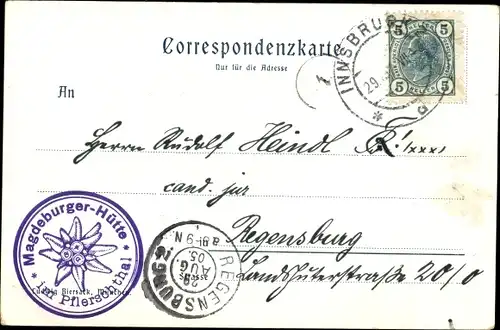 Correspondenzkarte
Nur für die Adresse
INNSBRUCK
29
5 5
5 5
An
Herrn Rudolf Heindl
cand. jur
Regensburg
Landshuterstraße 20/0
* Magdeburger-Hütte *
im Pflerschthal
Ludwig Biersack, München.
REGENSBURG 2.
29
AUG.
05